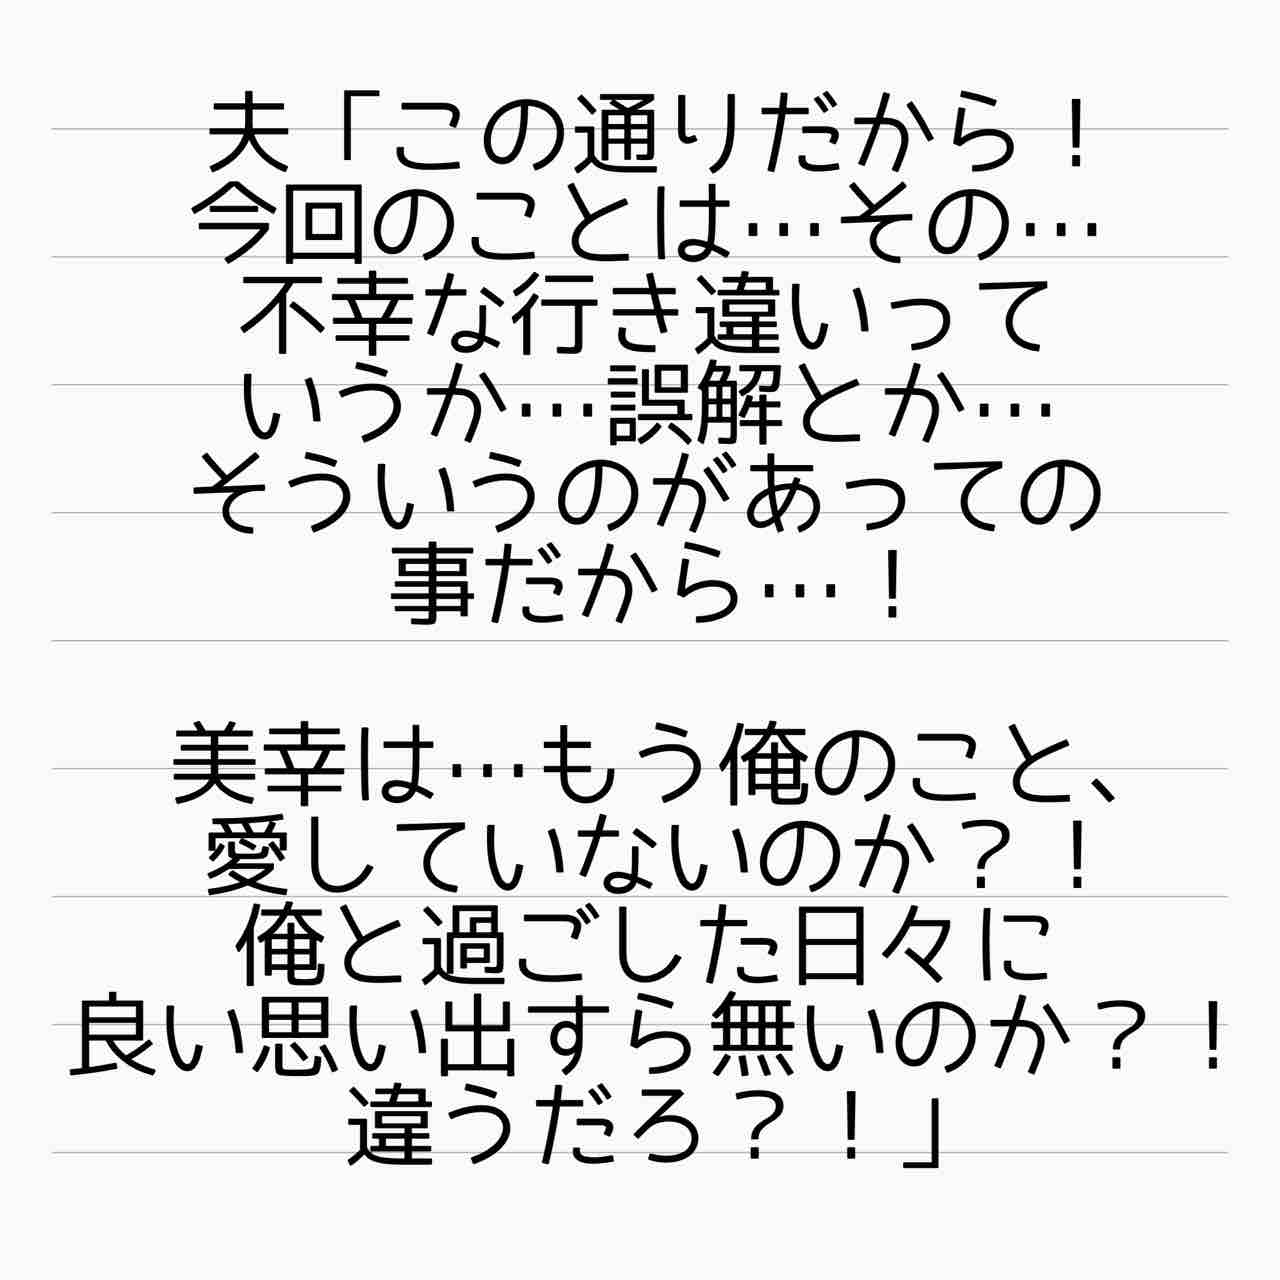 夫「この通りだから！
今回のことは…その…
不幸な行き違いって
いうか…誤解とか…
そういうのがあっての
事だから…！
美幸は…もう俺のこと、
愛していないのか？！
俺と過ごした日々に
良い思い出すら無いのか？！
違うだろ？！」